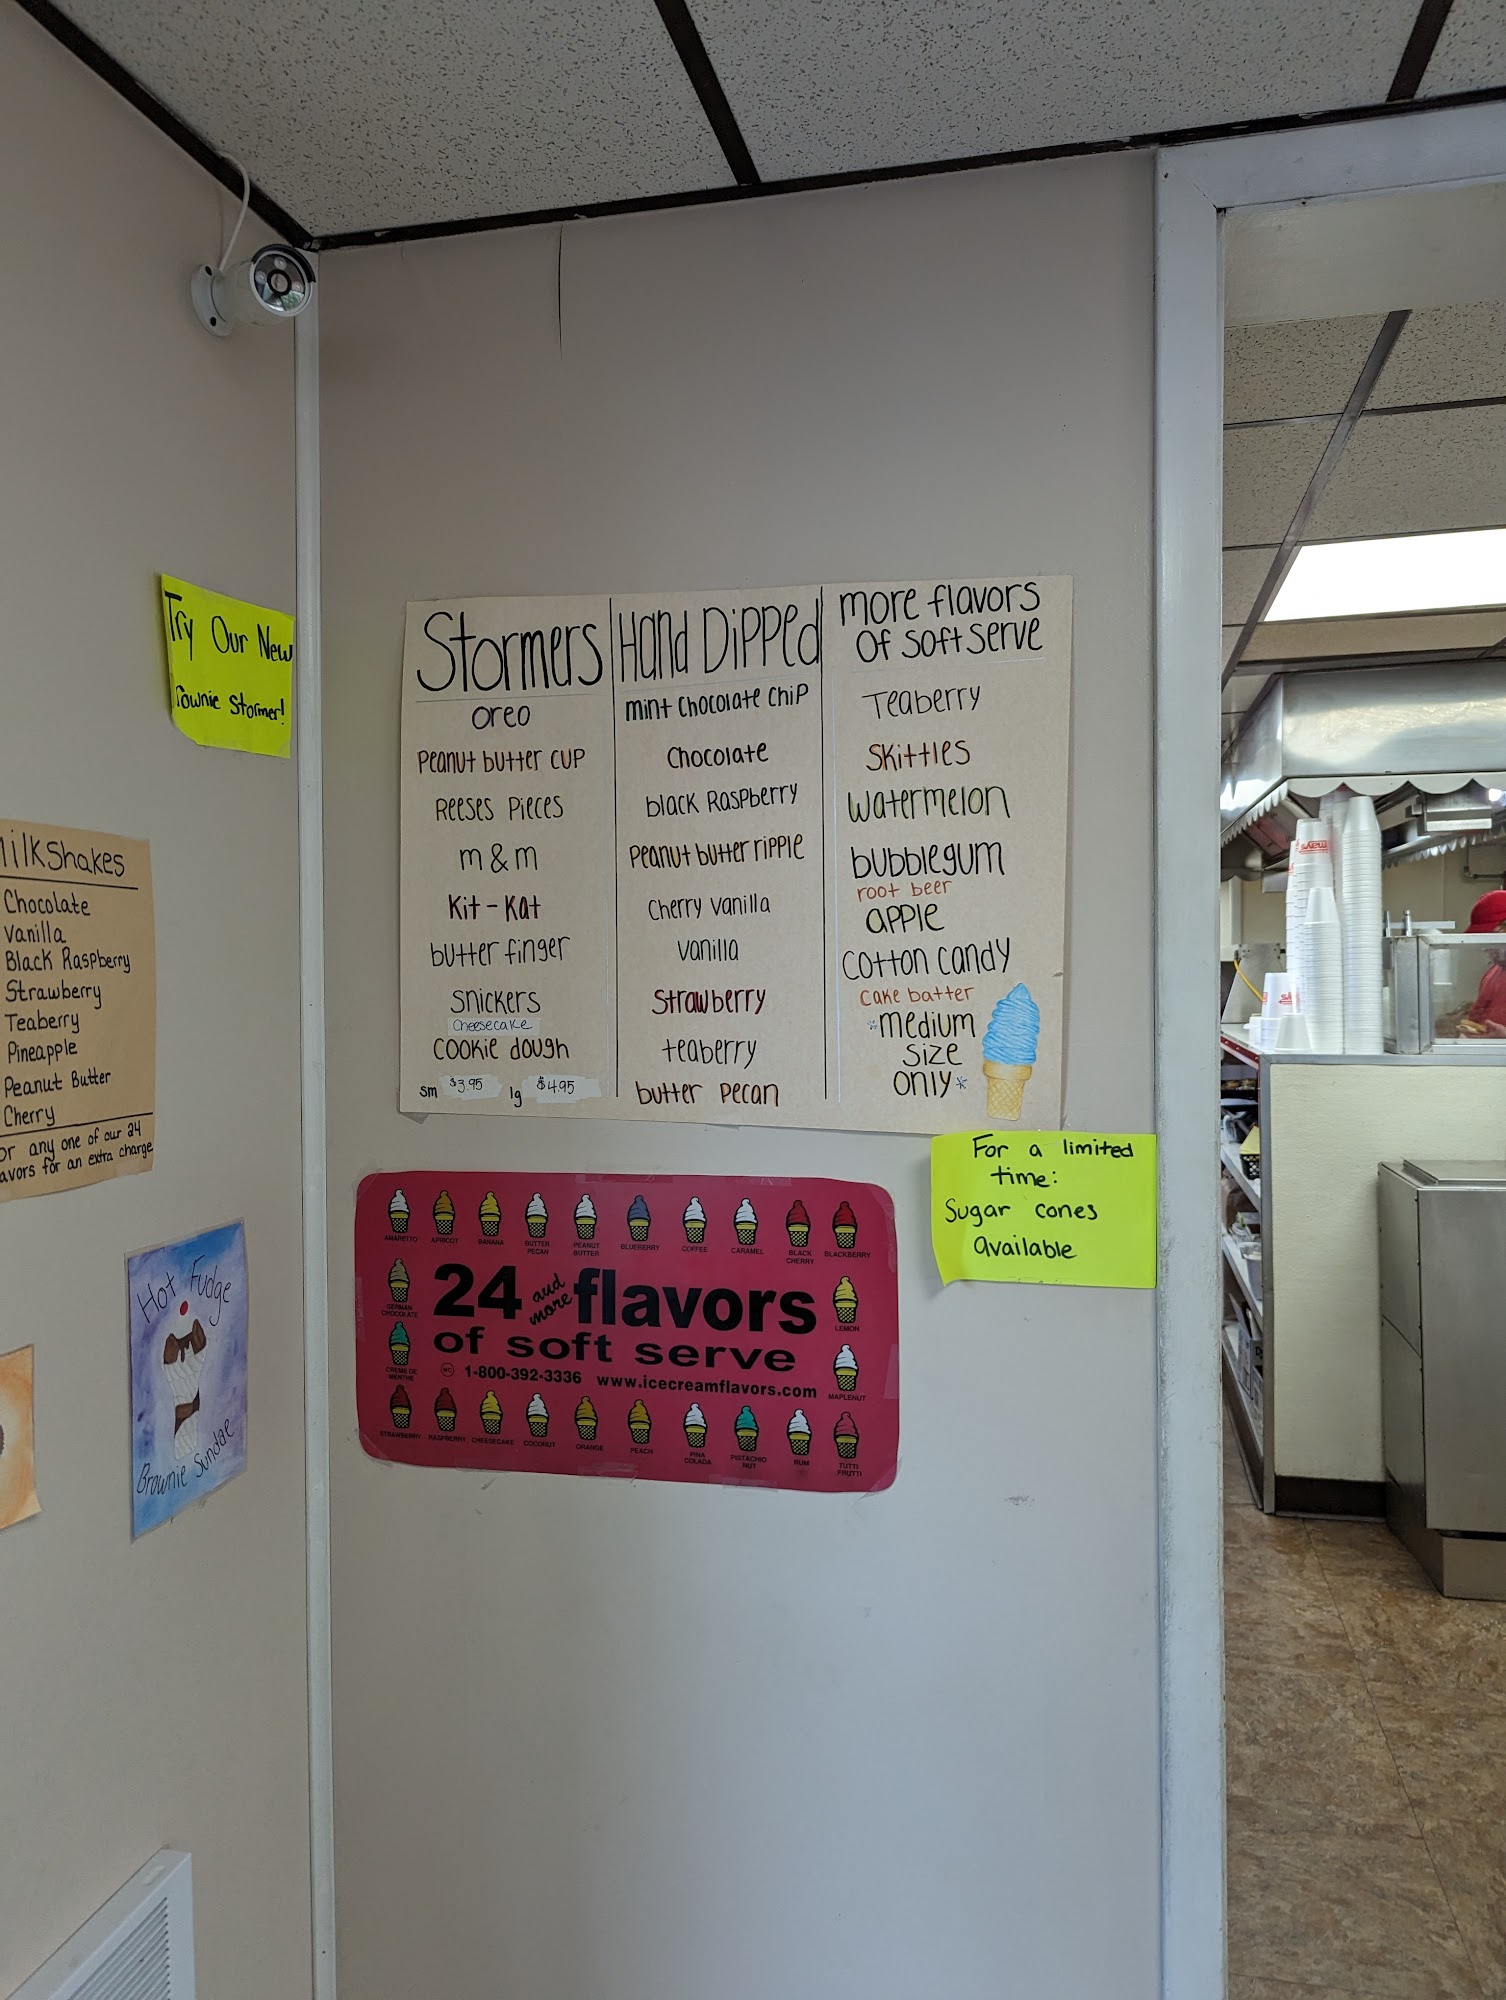 Try Our New
Brownie Stormer!
Milkshakes
Chocolate
Vanilla
Black Raspberry
Strawberry
Teaberry
Pineapple
Peanut Butter
Cherry
or any one of our 24
avors for an extra charge
Hot Fudge
Brownie Sundae
Stormers
oreo
Peanut butter cup
Reeses Pieces
m & m
Kit - Kat
butter finger
Snickers
Cheesecake
cookie dough
sm $3.95 lg $4.95
Hand Dipped
mint chocolate chip
Chocolate
black Raspberry
Peanut butter ripple
Cherry vanilla
vanilla
Strawberry
teaberry
butter pecan
more flavors
of soft serve
Teaberry
Skittles
watermelon
bubblegum
root beer
apple
cotton candy
cake batter
*medium
size
only*
For a limited
time:
Sugar cones
available
AMARETTO
APRICOT
BANANA
BUTTER
PECAN
PEANUT
BUTTER
BLUEBERRY
COFFEE
CARAMEL
BLACK
CHERRY
BLACKBERRY
24 and more flavors
of soft serve
1-800-392-3336 www.icecreamflavors.com
GERMAN
CHOCOLATE
LEMON
CREME DE
MENTHE
MAPLENUT
STRAWBERRY
RASPBERRY
CHEESECAKE
COCONUT
ORANGE
PEACH
PINA
COLADA
PISTACHIO
NUT
RUM
TUTTI
FRUTTI